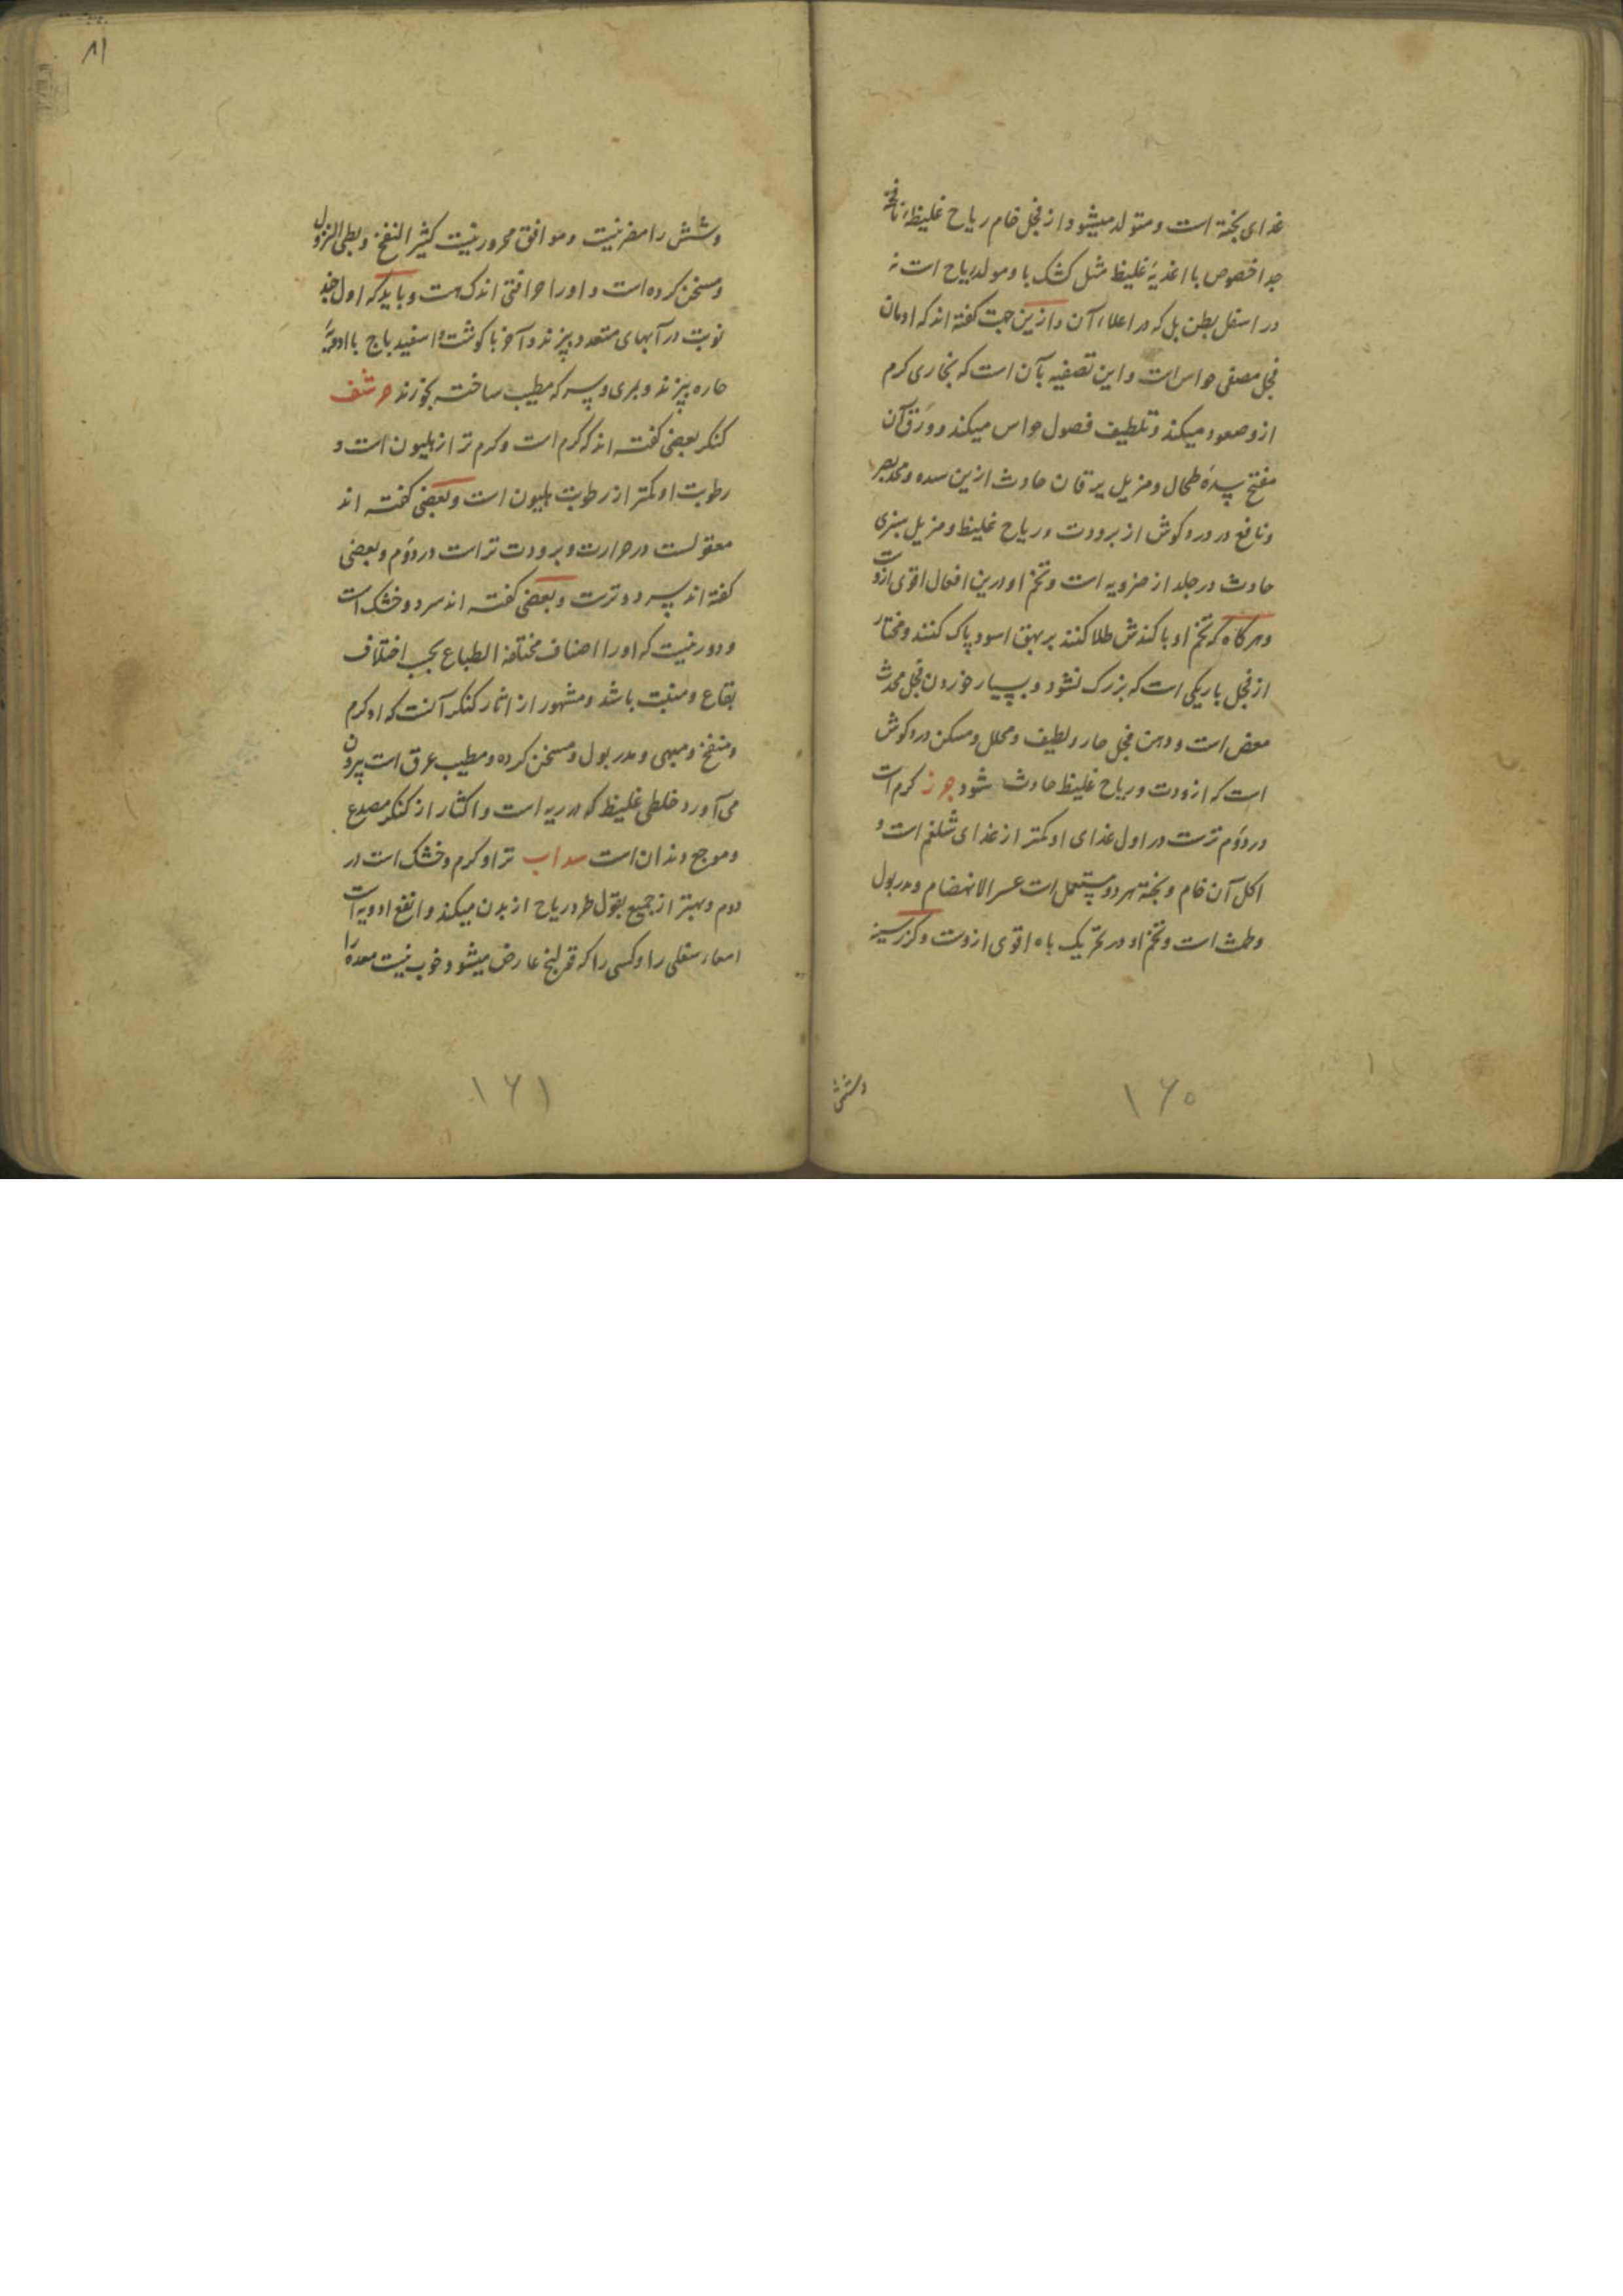 غذای پخته است و متولد میشود از فجل خام ریاح غلیظه نافخه
جدا خصوص با اغذیهٔ غلیظ مثل کشک با و مولد ریاح است نه
در اسفل بطن بل که در اعلاء آن و ازین جهت گفته اند که ادمان
فجل مصفی حواس است و این تصفیه بآن است که بخاری گرم
ازو صعود میکند و تلطیف فضول حواس میکند و ورق آن
مفتح سدهٔ طحال و مزیل یرقان حادث ازین سده و محد بصر
و نافع در درد گوش از برودت و ریاح غلیظ و مزیل سبزی
حادث در جلد از ضربه است و تخم او درین افعال اقوی ازوست
و هرگاه که تخم او با کندش طلا کنند بر بهق اسود پاک کنند و مختار
از فجل باریکی است که بزرگ نشود و بسیار خوردن فجل محدث
مغص است و دهن فجل حار و لطیف و محلل و مسکن درد گوش
است که از ودت و ریاح غلیظ حادث شود جزر گرم است
در دوم ترست در اول غذای او کمتر از غذای شلغم است و
اکل آن خام و پخته هر دو مستعمل است عسر الانهضام و مدر بول
و طمث است و تخم او در تحریک باه اقوی ازوست و گزر سینه
وشش
۱۶۰
۸۱
وشش را مضر نیست و موافق محرور نیست کثیر النفخ و بطی النزول
و مسخن کرده است و او را حرافتی اندک هست و باید که اول چند
نوبت در آبهای متعدد بپزند و آخر با گوشت و اسفیدباج با ادویهٔ
حاره بپزند و بمری و سرکه مطیب ساخته بخورند حرشف
کنکر بعضی گفته اند که گرم است و گرم تر از هلیون است و
رطوبت او کمتر از رطوبت هلیون است و بعضی گفته اند
معتدلست در حرارت و برودت تر است در دوم و بعضی
گفته اند سرد و ترست و بعضی گفته اند سرد و خشک است
و دور نیست که او را اصناف مختلفة الطباع بحسب اختلاف
بقاع و منبت باشد و مشهور از اثار کنکر آنست که او گرم
و منفخ و مبهی و مدر بول و مسخن کرده و مطیب عرق است بیرون
می آورد خلطی غلیظ که در ریه است و اکثار از کنکر مصدع
و موجع دندان است سداب تر او گرم و خشک است در
دوم و بهتر از جمیع بقول طرد ریاح از بدن میکند و انفع ادویه است
امعاء سفلی را و کسی را که قولنج عارض میشود و خوب نیست معده را
۱۶۱